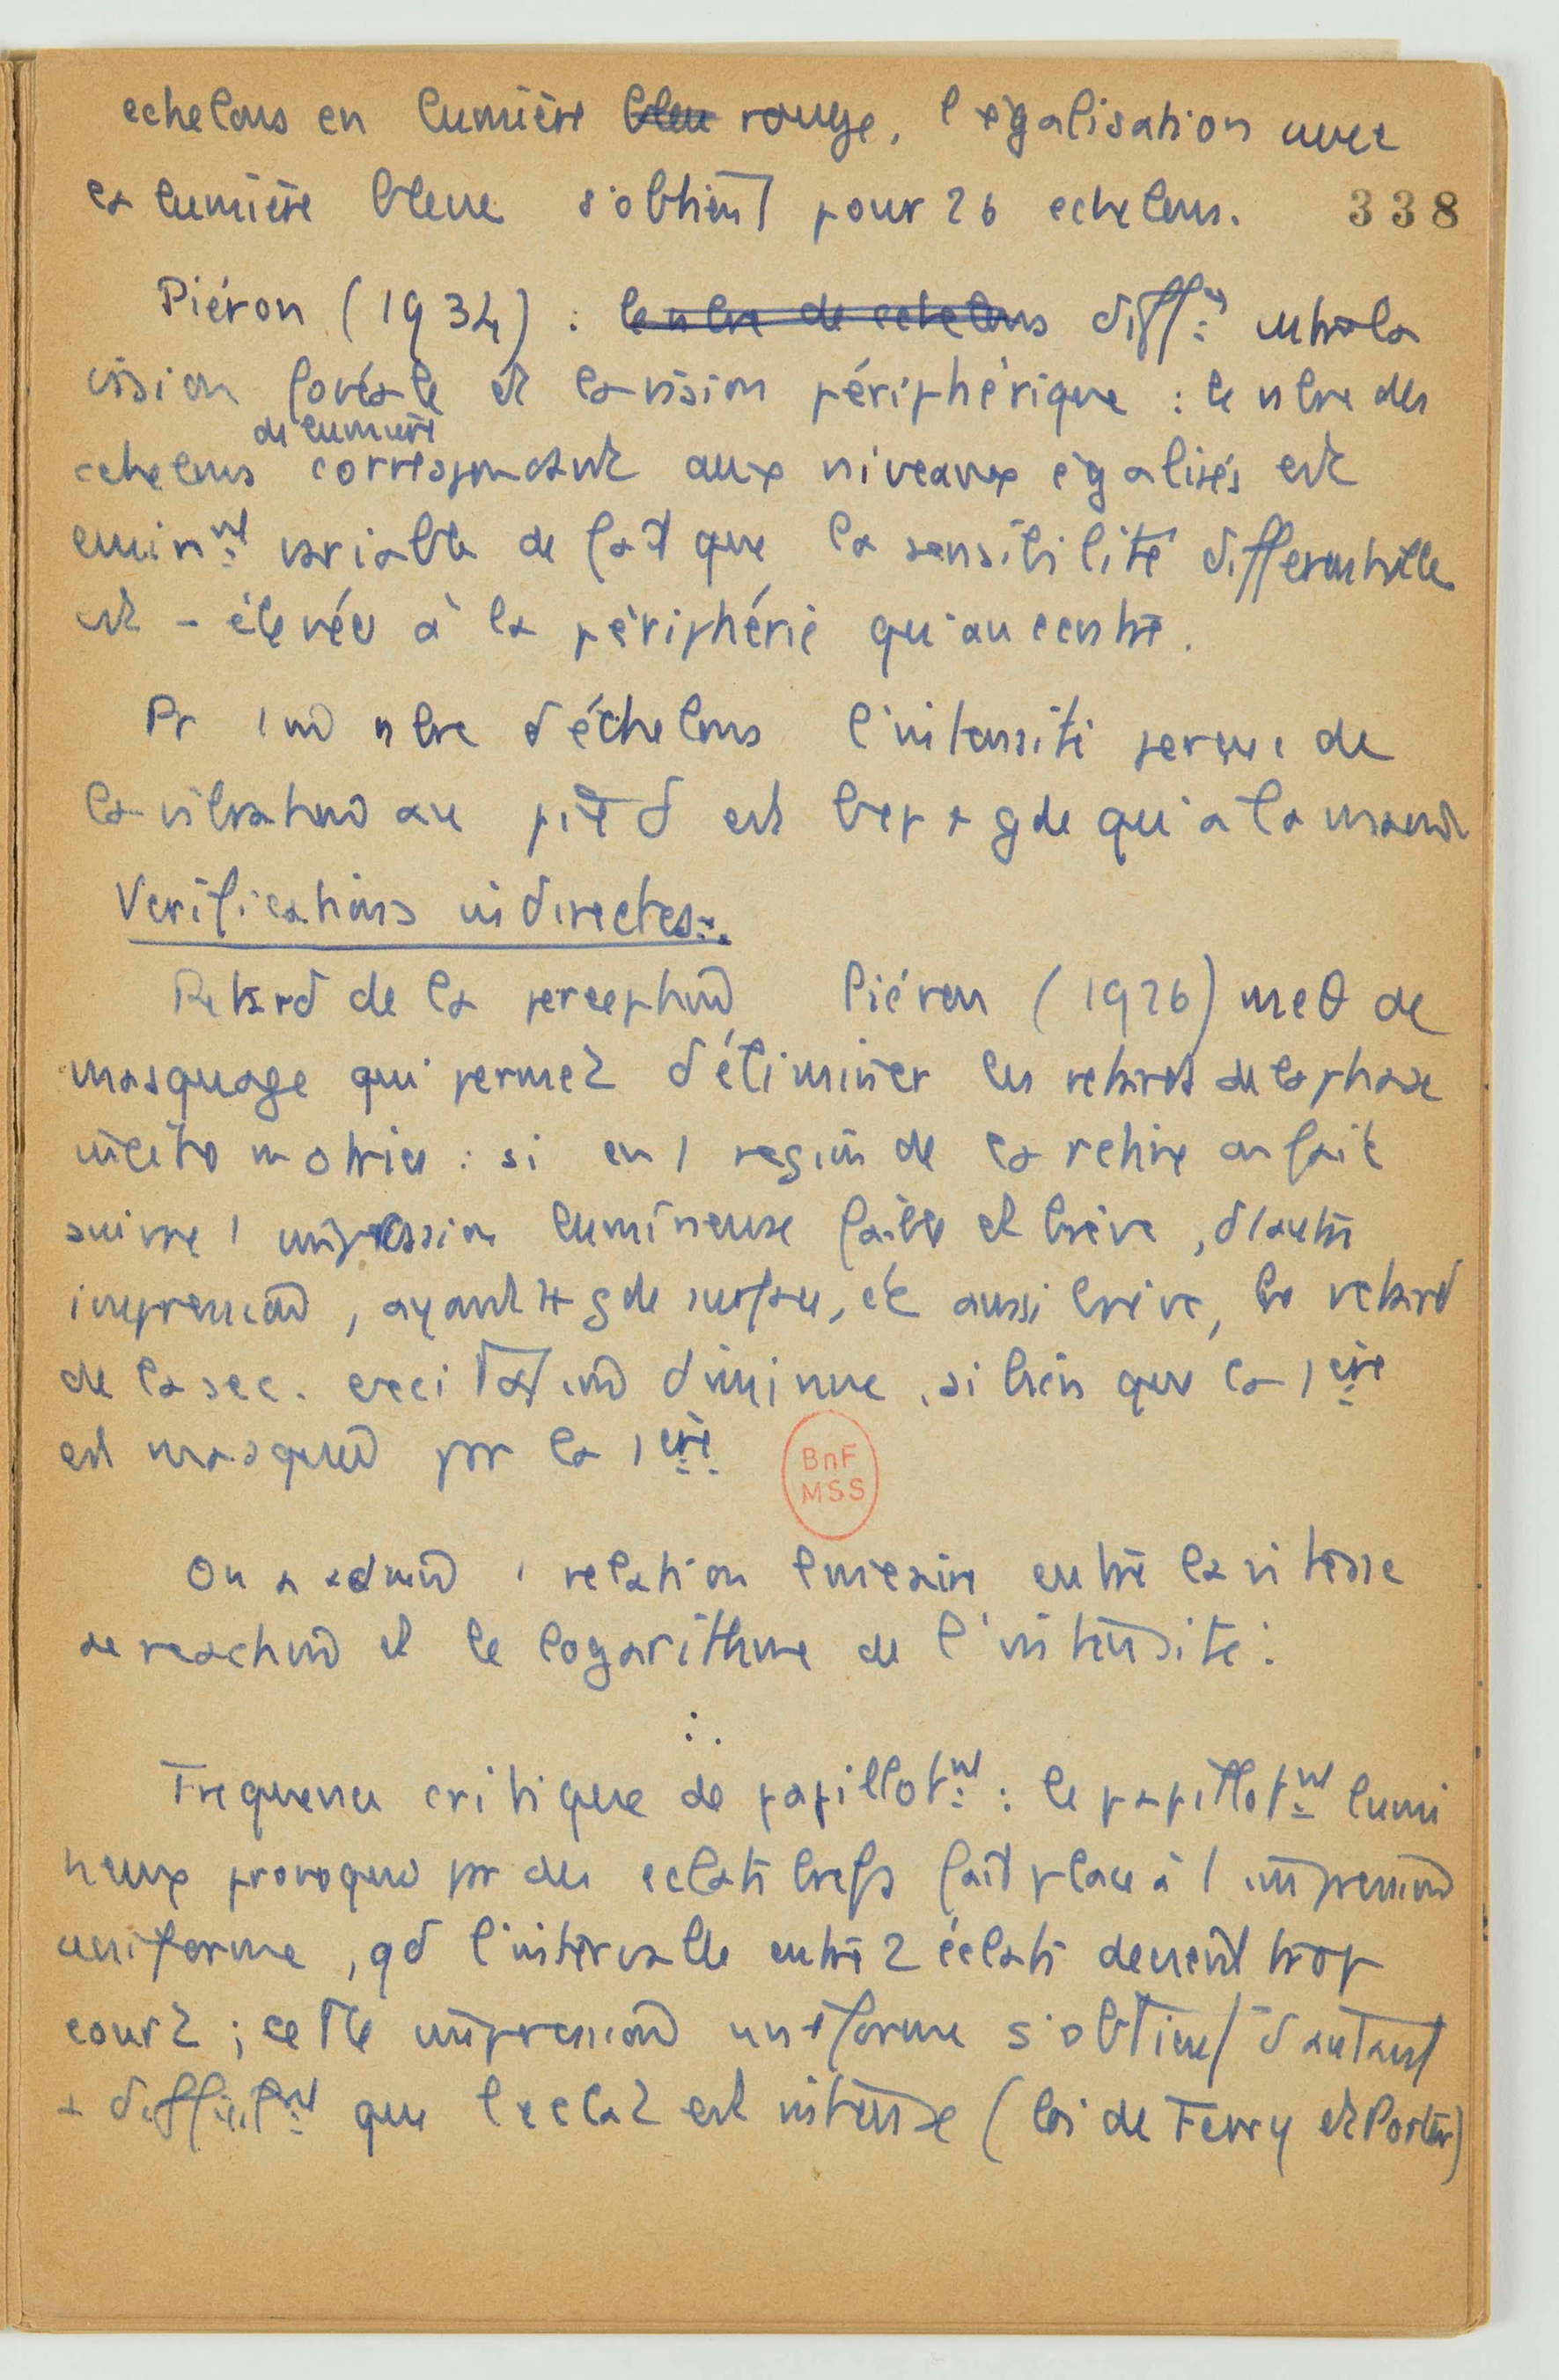 echelons en lumière bleu rouge, l'égalisation avec
la lumière bleue s'obtient pour 26 echelons.
338
Piéron (1934) : le nbre de echelons diff.ces entre la
vision fovéale et la vision périphérique : le nbre des
de lumière
echelons correspondant aux niveaux égalisés est
emin.nt variable de fait que la sensibilité differentielle
est - élevée à la périphérie qu'au centre.
Pr 1 nbre d'échelons l'intensité perçue de
la vibration au pied est bcp + gde qu'à la main
Verifications indirectes.
Retard de la perception Piéron (1926) meθ de
masquage qui permet d'éliminer les retards de la phase
incito motrice : si en 1 region de la retine on fait
suivre 1 impression lumineuse faible et brève, d'1 autre
impression, ayant + gde surface, et aussi brève, le retard
de la sec. excitation diminue, si bien que la 1ère
est masquée par la 1ère
BnF
MSS
On a admis 1 relation lineaire entre la vitesse
de reaction et le logarithme de l'intensité :
Frequence critique de papillot.nt : le papillot.nt lumi
neux provoqué par des eclats brefs fait place à 1 impression
uniforme, qd l'intervalle entre 2 éclats devient trop
court ; cette impression uniforme s'obtient d'autant
+ difficil.nt que l'eclat est intense (loi de Ferry et Porter)